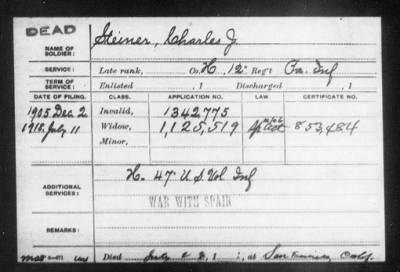 DEAD
NAME OF SOLDIER: Steiner, Charles J.
SERVICE: Late rank, Co. H, 12" Reg't Pa. Inf
TERM OF SERVICE: Enlisted , 1 Discharged , 1
DATE OF FILING. CLASS. APPLICATION NO. LAW. CERTIFICATE NO.
1905 Dec. 2 Invalid, 1342775
1918, July 11 Widow, 1,125,519 853,484
Minor,
ADDITIONAL SERVICES: H. 47" U S Vol Inf
WAR WITH SPAIN
REMARKS:
Died July 1 , at San Francisco, Calif.